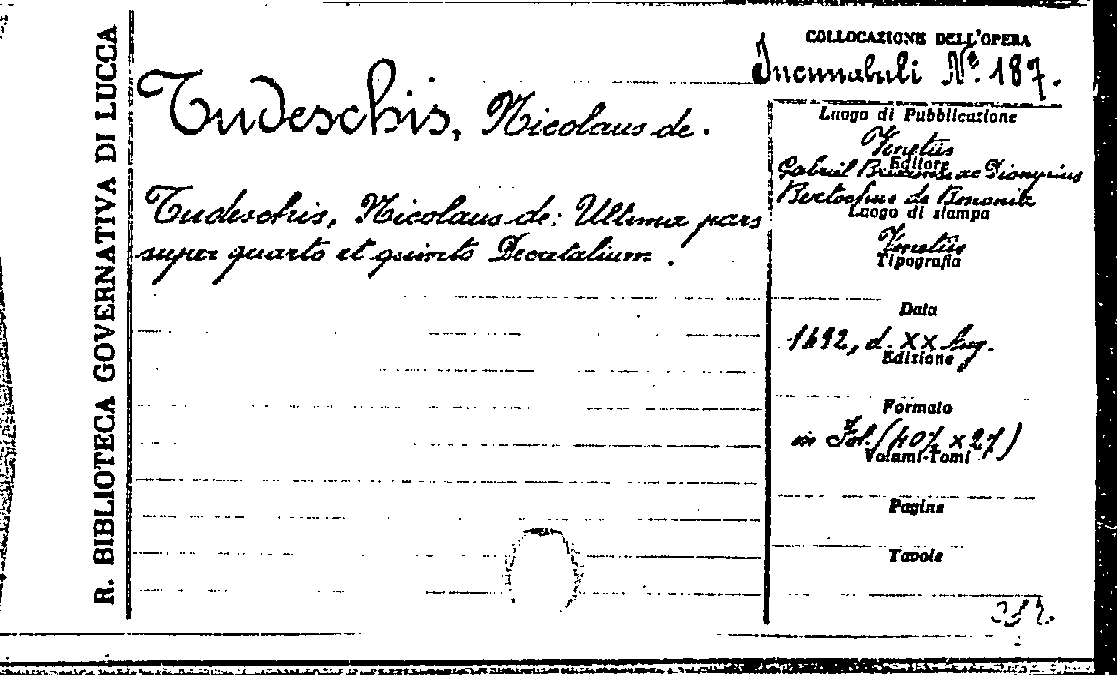 R. BIBLIOTECA GOVERNATIVA DI LUCCA
Tudeschis, Nicolaus de.
Tudeschis, Nicolaus de: Ultima pars
super quarto et quinto Decretalium.
COLLOCAZIONE DELL'OPERA
Incunnabuli Nº. 187.
Luogo di Pubblicazione
Venetiis
Editore
Gabriel ac Dionysius
Bertochus de Bononia
Luogo di stampa
Venetiis
Tipografia
Data
1492, d. XX Aug.
Edizione
Formato
in Fol.
Volumi-Tomi
Pagine
Tavole